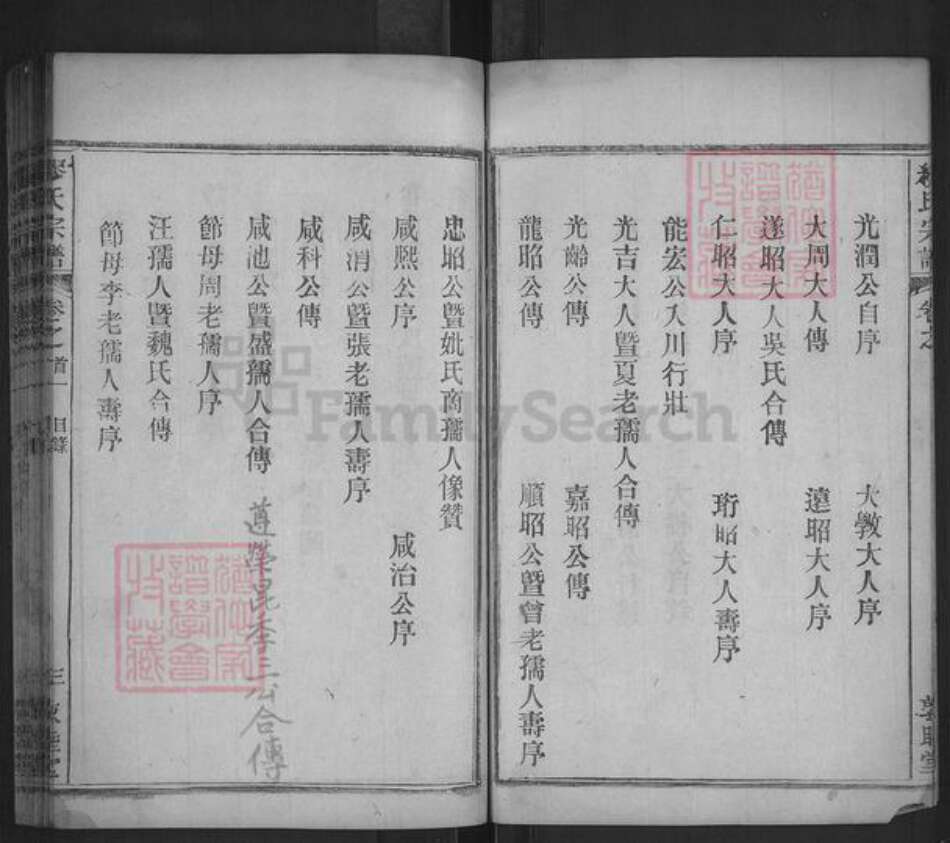 光潤公自序　大敩大人序
大周大人傳　遠昭大人序
遂昭大人吳氏合傳
仁昭大人序　珩昭大人壽序
能宏公入川行壯
光吉大人曁夏老孺人合傳
光齡公傳　嘉昭公傳
龍昭公傳　順昭公曁曾老孺人壽序
忠昭公曁妣氏商孺人像贊
咸熙公序　咸治公序
咸消公曁張老孺人壽序
咸科公傳
咸池公曁盛孺人合傳　蓮榮昆季三公合傳
節母周老孺人序
汪孺人曁魏氏合傳
節母李老孺人壽序
氏宗譜　卷之首一　目錄　三　敦睦堂
FamilySearch